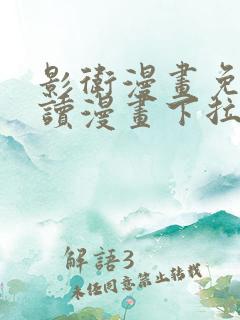 影衛漫畫免
讀漫畫下拉
解語3
未任同意禁止轉載